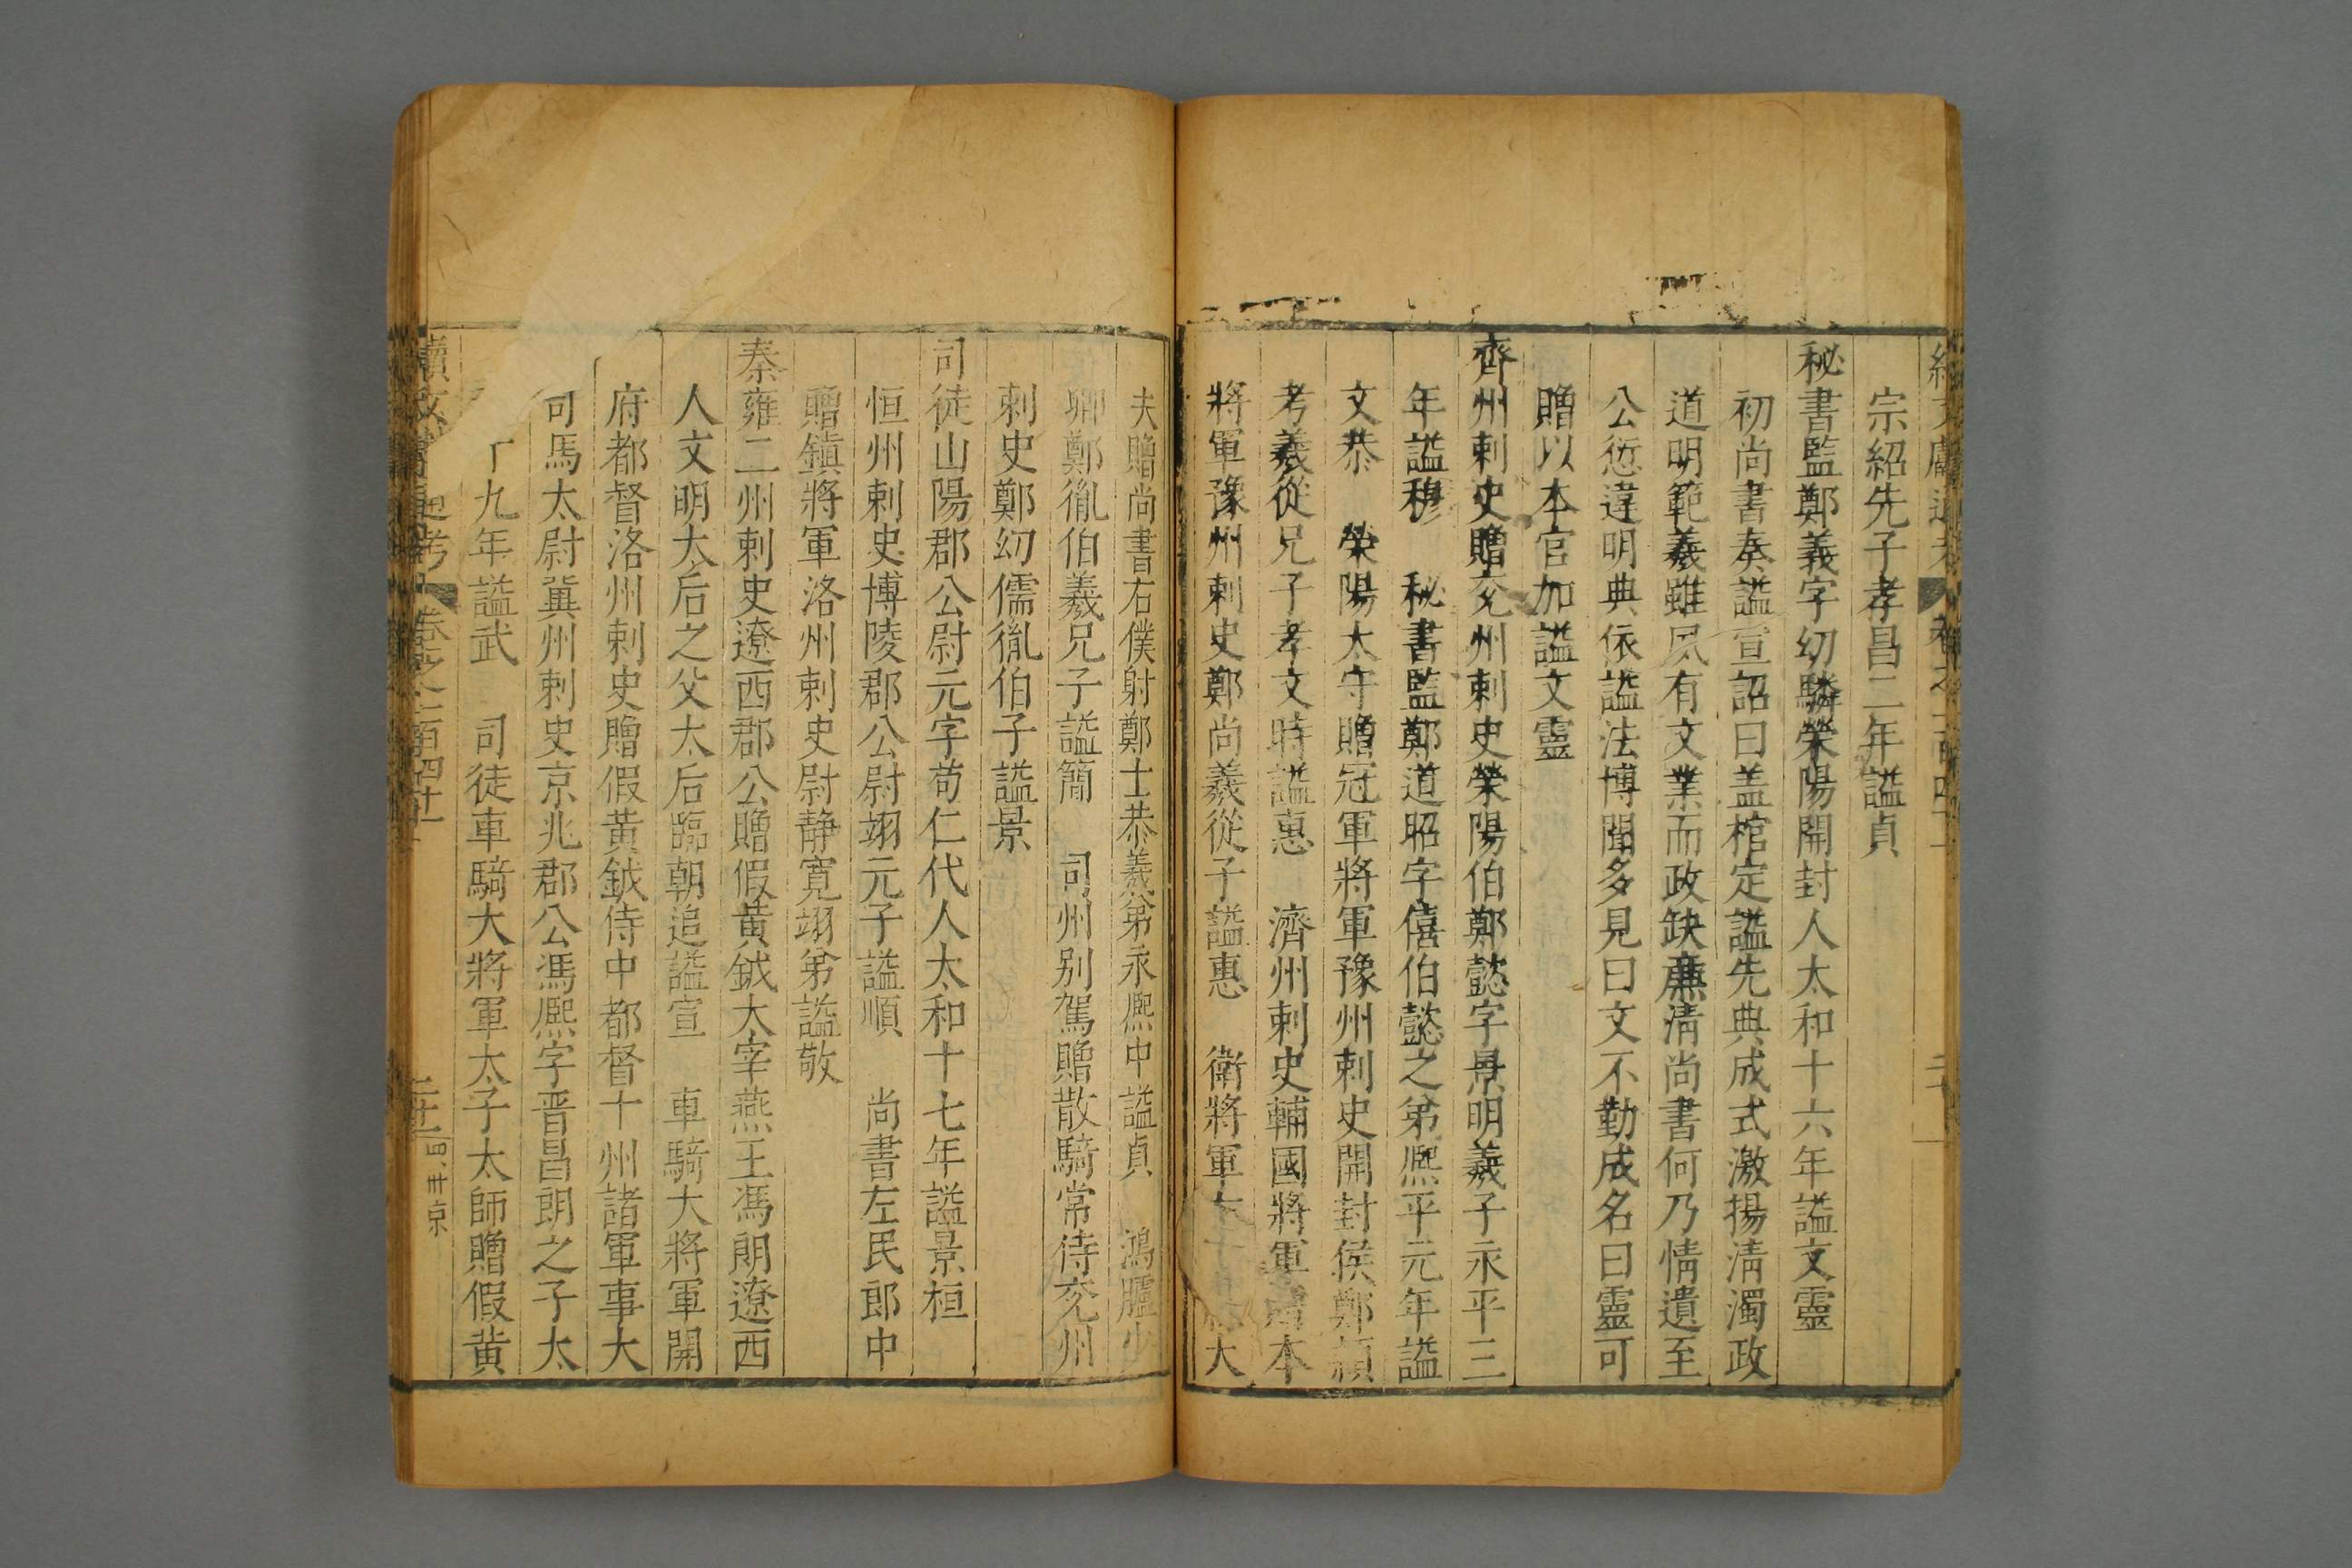 宗紹先子孝昌二年謚貞
秘書監鄭義字幼驎榮陽開封人太和十六年謚文靈
初尚書奏謚宣詔曰盖棺定謚先典成式激揚清濁政
道明範羲雖夙有文業而政缺亷清尚書何乃情遺至
公愆違明典依謚法博聞多見曰文不勤成名曰靈可
贈以本官加謚文靈
齊州刺史贈兖州刺史榮陽伯鄭懿字景明羲子永平三
年謚穆　秘書監鄭道昭字僖伯懿之弟熈平元年謚
文恭　榮陽太守贈冠軍將軍豫州刺史開封侯鄭
考羲從兄子孝文時謚惠　濟州刺史輔國將軍本
將軍豫州刺史鄭尚羲從子謚惠　衛將軍大
夫贈尚書右僕射鄭士恭羲弟永熈中謚貞　鴻臚少
卿鄭胤伯羲兄子謚簡　司州别駕贈散騎常侍兖州
刺史鄭幼儒胤伯子謚景
司徒山陽郡公尉元字苟仁代人太和十七年謚景桓
恒州刺史博陵郡公尉翊元子謚順　尚書左民郎中
贈鎮將軍洛州刺史尉静寛翊弟謚敬
秦雍二州刺史遼西郡公贈假黄鉞大宰燕王馮朗遼西
人文明太后之父太后臨朝追謚宣　車騎大將軍開
府都督洛州刺史贈假黄鉞侍中都督十州諸軍事大
司馬太尉冀州刺史京兆郡公馮熈字晋昌朗之子太
九年謚武　司徒車騎大將軍太子太師贈假黄